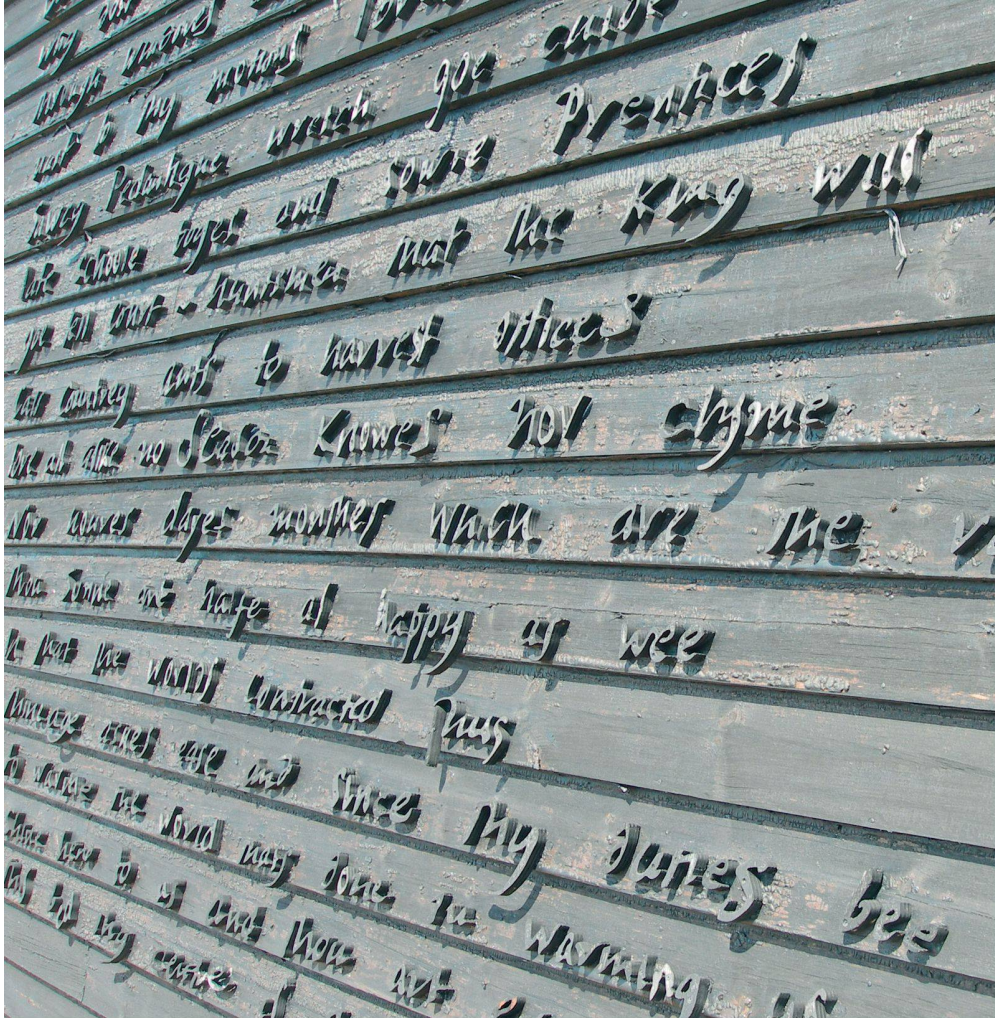 why
through windowes
must to thy motions lovers
Sawcy Pedantique wretch goe chide
late schoole boyes and sowre Prentices
goe tell court-huntsmen that the King will
call countrey ants to harvest offices
love all alike no season knowes nor clyme
Nor houres dayes months which are the
thou sunne art halfe as happy as wee
In that the worlds contracted thus
thine age askes ease and since thy duties bee
to warme the world thats done in warming us
Shine here to us and thou art
this bed thy